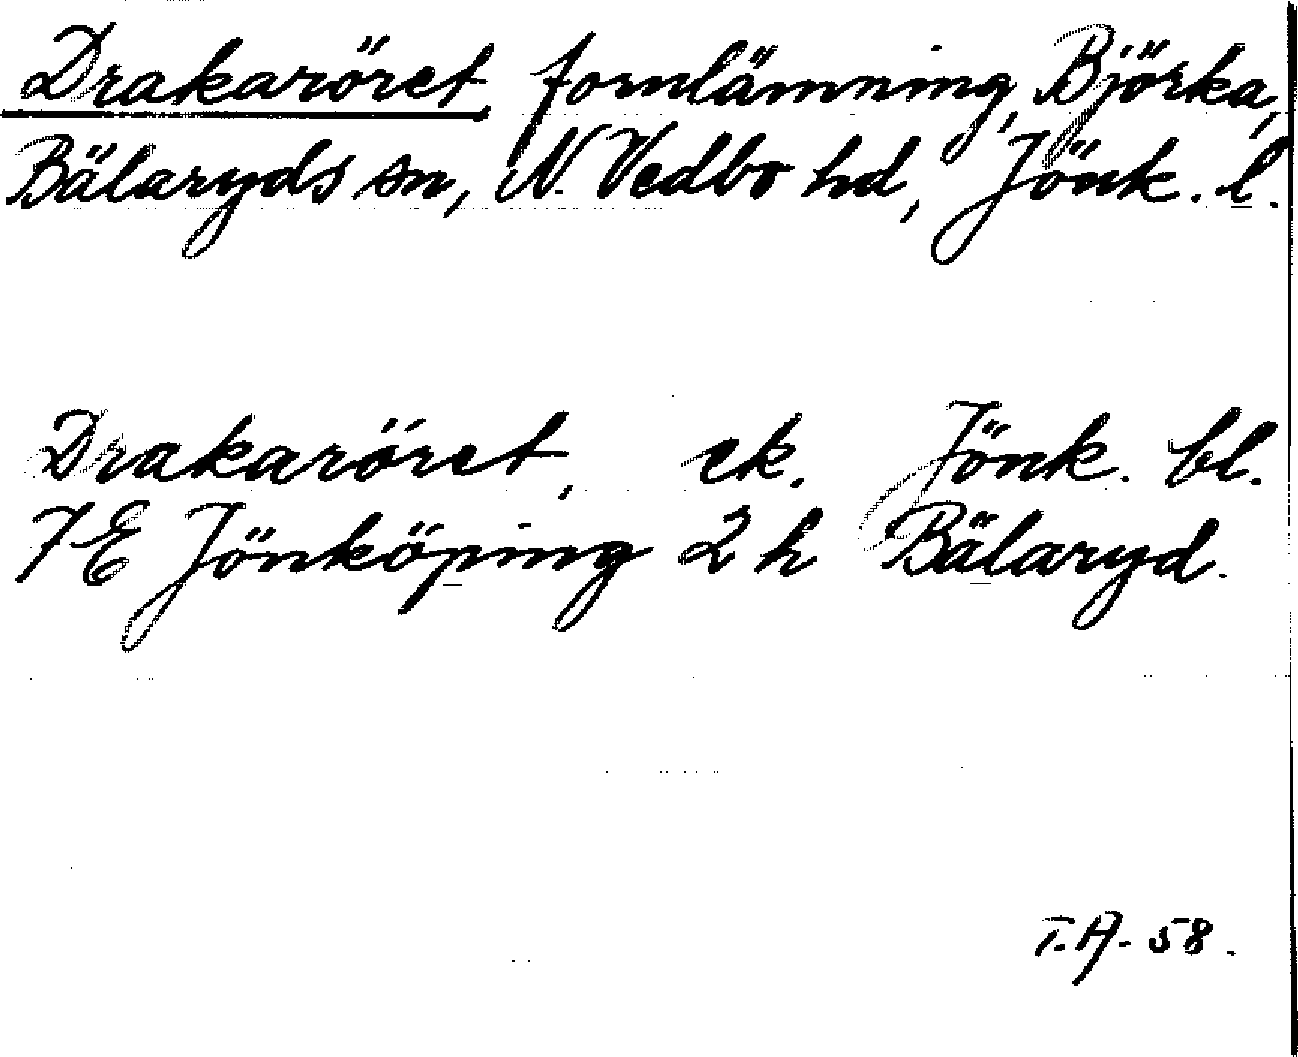 Drakaröret, fornlämning, Björka,
Bälaryds sn, N. Vedbo hd, Jönk. l.
Drakaröret, ek. Jönk. bl.
7E Jönköping 2h Bälaryd.
T.A. 58.